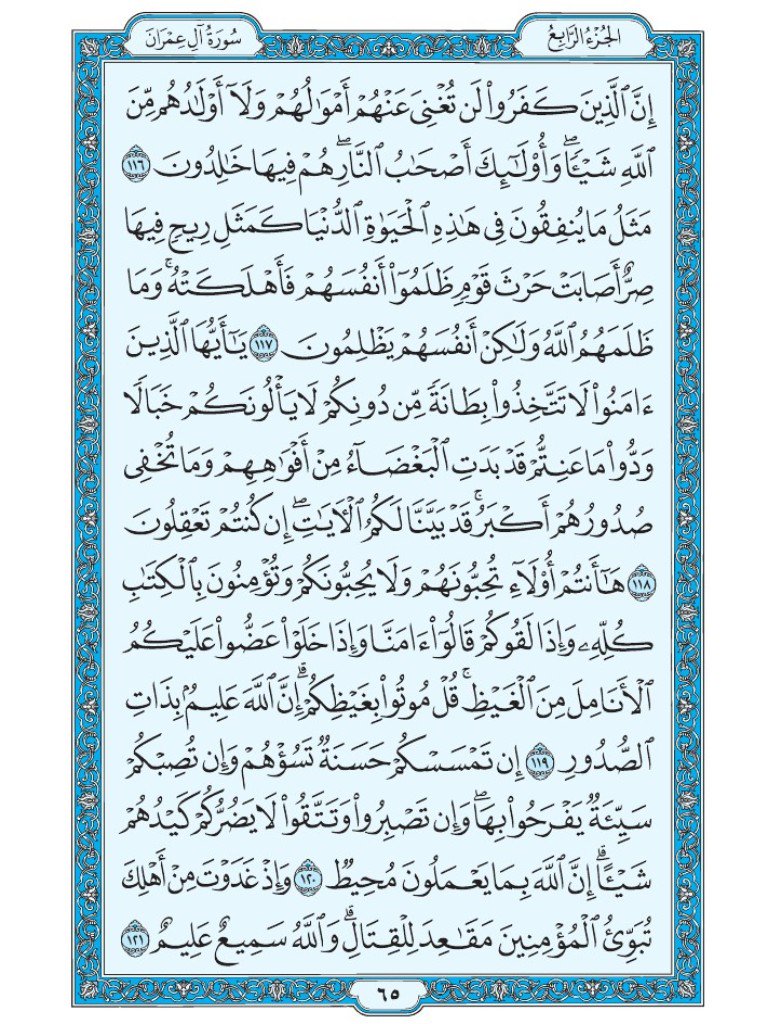 الجُزْءُ الرَّابِعُ
سُورَةُ آلِ عِمْرَانَ
إِنَّ ٱلَّذِينَ كَفَرُواْ لَن تُغْنِىَ عَنْهُمْ أَمْوَٰلُهُمْ وَلَآ أَوْلَٰدُهُم مِّنَ
ٱللَّهِ شَيْـًٔاۖ وَأُوْلَٰٓئِكَ أَصْحَٰبُ ٱلنَّارِۖ هُمْ فِيهَا خَٰلِدُونَ ١١٦
مَثَلُ مَا يُنفِقُونَ فِى هَٰذِهِ ٱلْحَيَوٰةِ ٱلدُّنْيَا كَمَثَلِ رِيحٍ فِيهَا
صِرٌّ أَصَابَتْ حَرْثَ قَوْمٍ ظَلَمُوٓاْ أَنفُسَهُمْ فَأَهْلَكَتْهُۚ وَمَا
ظَلَمَهُمُ ٱللَّهُ وَلَٰكِنْ أَنفُسَهُمْ يَظْلِمُونَ ١١٧ يَٰٓأَيُّهَا ٱلَّذِينَ
ءَامَنُواْ لَا تَتَّخِذُواْ بِطَانَةً مِّن دُونِكُمْ لَا يَأْلُونَكُمْ خَبَالًا
وَدُّواْ مَا عَنِتُّمْ قَدْ بَدَتِ ٱلْبَغْضَآءُ مِنْ أَفْوَٰهِهِمْ وَمَا تُخْفِى
صُدُورُهُمْ أَكْبَرُۚ قَدْ بَيَّنَّا لَكُمُ ٱلْـَٔايَٰتِۖ إِن كُنتُمْ تَعْقِلُونَ
١١٨ هَٰٓأَنتُمْ أُوْلَآءِ تُحِبُّونَهُمْ وَلَا يُحِبُّونَكُمْ وَتُؤْمِنُونَ بِٱلْكِتَٰبِ
كُلِّهِۦ وَإِذَا لَقُوكُمْ قَالُوٓاْ ءَامَنَّا وَإِذَا خَلَوْاْ عَضُّواْ عَلَيْكُمُ
ٱلْأَنَامِلَ مِنَ ٱلْغَيْظِۚ قُلْ مُوتُواْ بِغَيْظِكُمْۗ إِنَّ ٱللَّهَ عَلِيمٌۢ بِذَاتِ
ٱلصُّدُورِ ١١٩ إِن تَمْسَسْكُمْ حَسَنَةٌ تَسُؤْهُمْ وَإِن تُصِبْكُمْ
سَيِّئَةٌ يَفْرَحُواْ بِهَاۖ وَإِن تَصْبِرُواْ وَتَتَّقُواْ لَا يَضُرُّكُمْ كَيْدُهُمْ
شَيْـًٔاۗ إِنَّ ٱللَّهَ بِمَا يَعْمَلُونَ مُحِيطٌ ١٢٠ وَإِذْ غَدَوْتَ مِنْ أَهْلِكَ
تُبَوِّئُ ٱلْمُؤْمِنِينَ مَقَٰعِدَ لِلْقِتَالِۗ وَٱللَّهُ سَمِيعٌ عَلِيمٌ ١٢١
٦٥